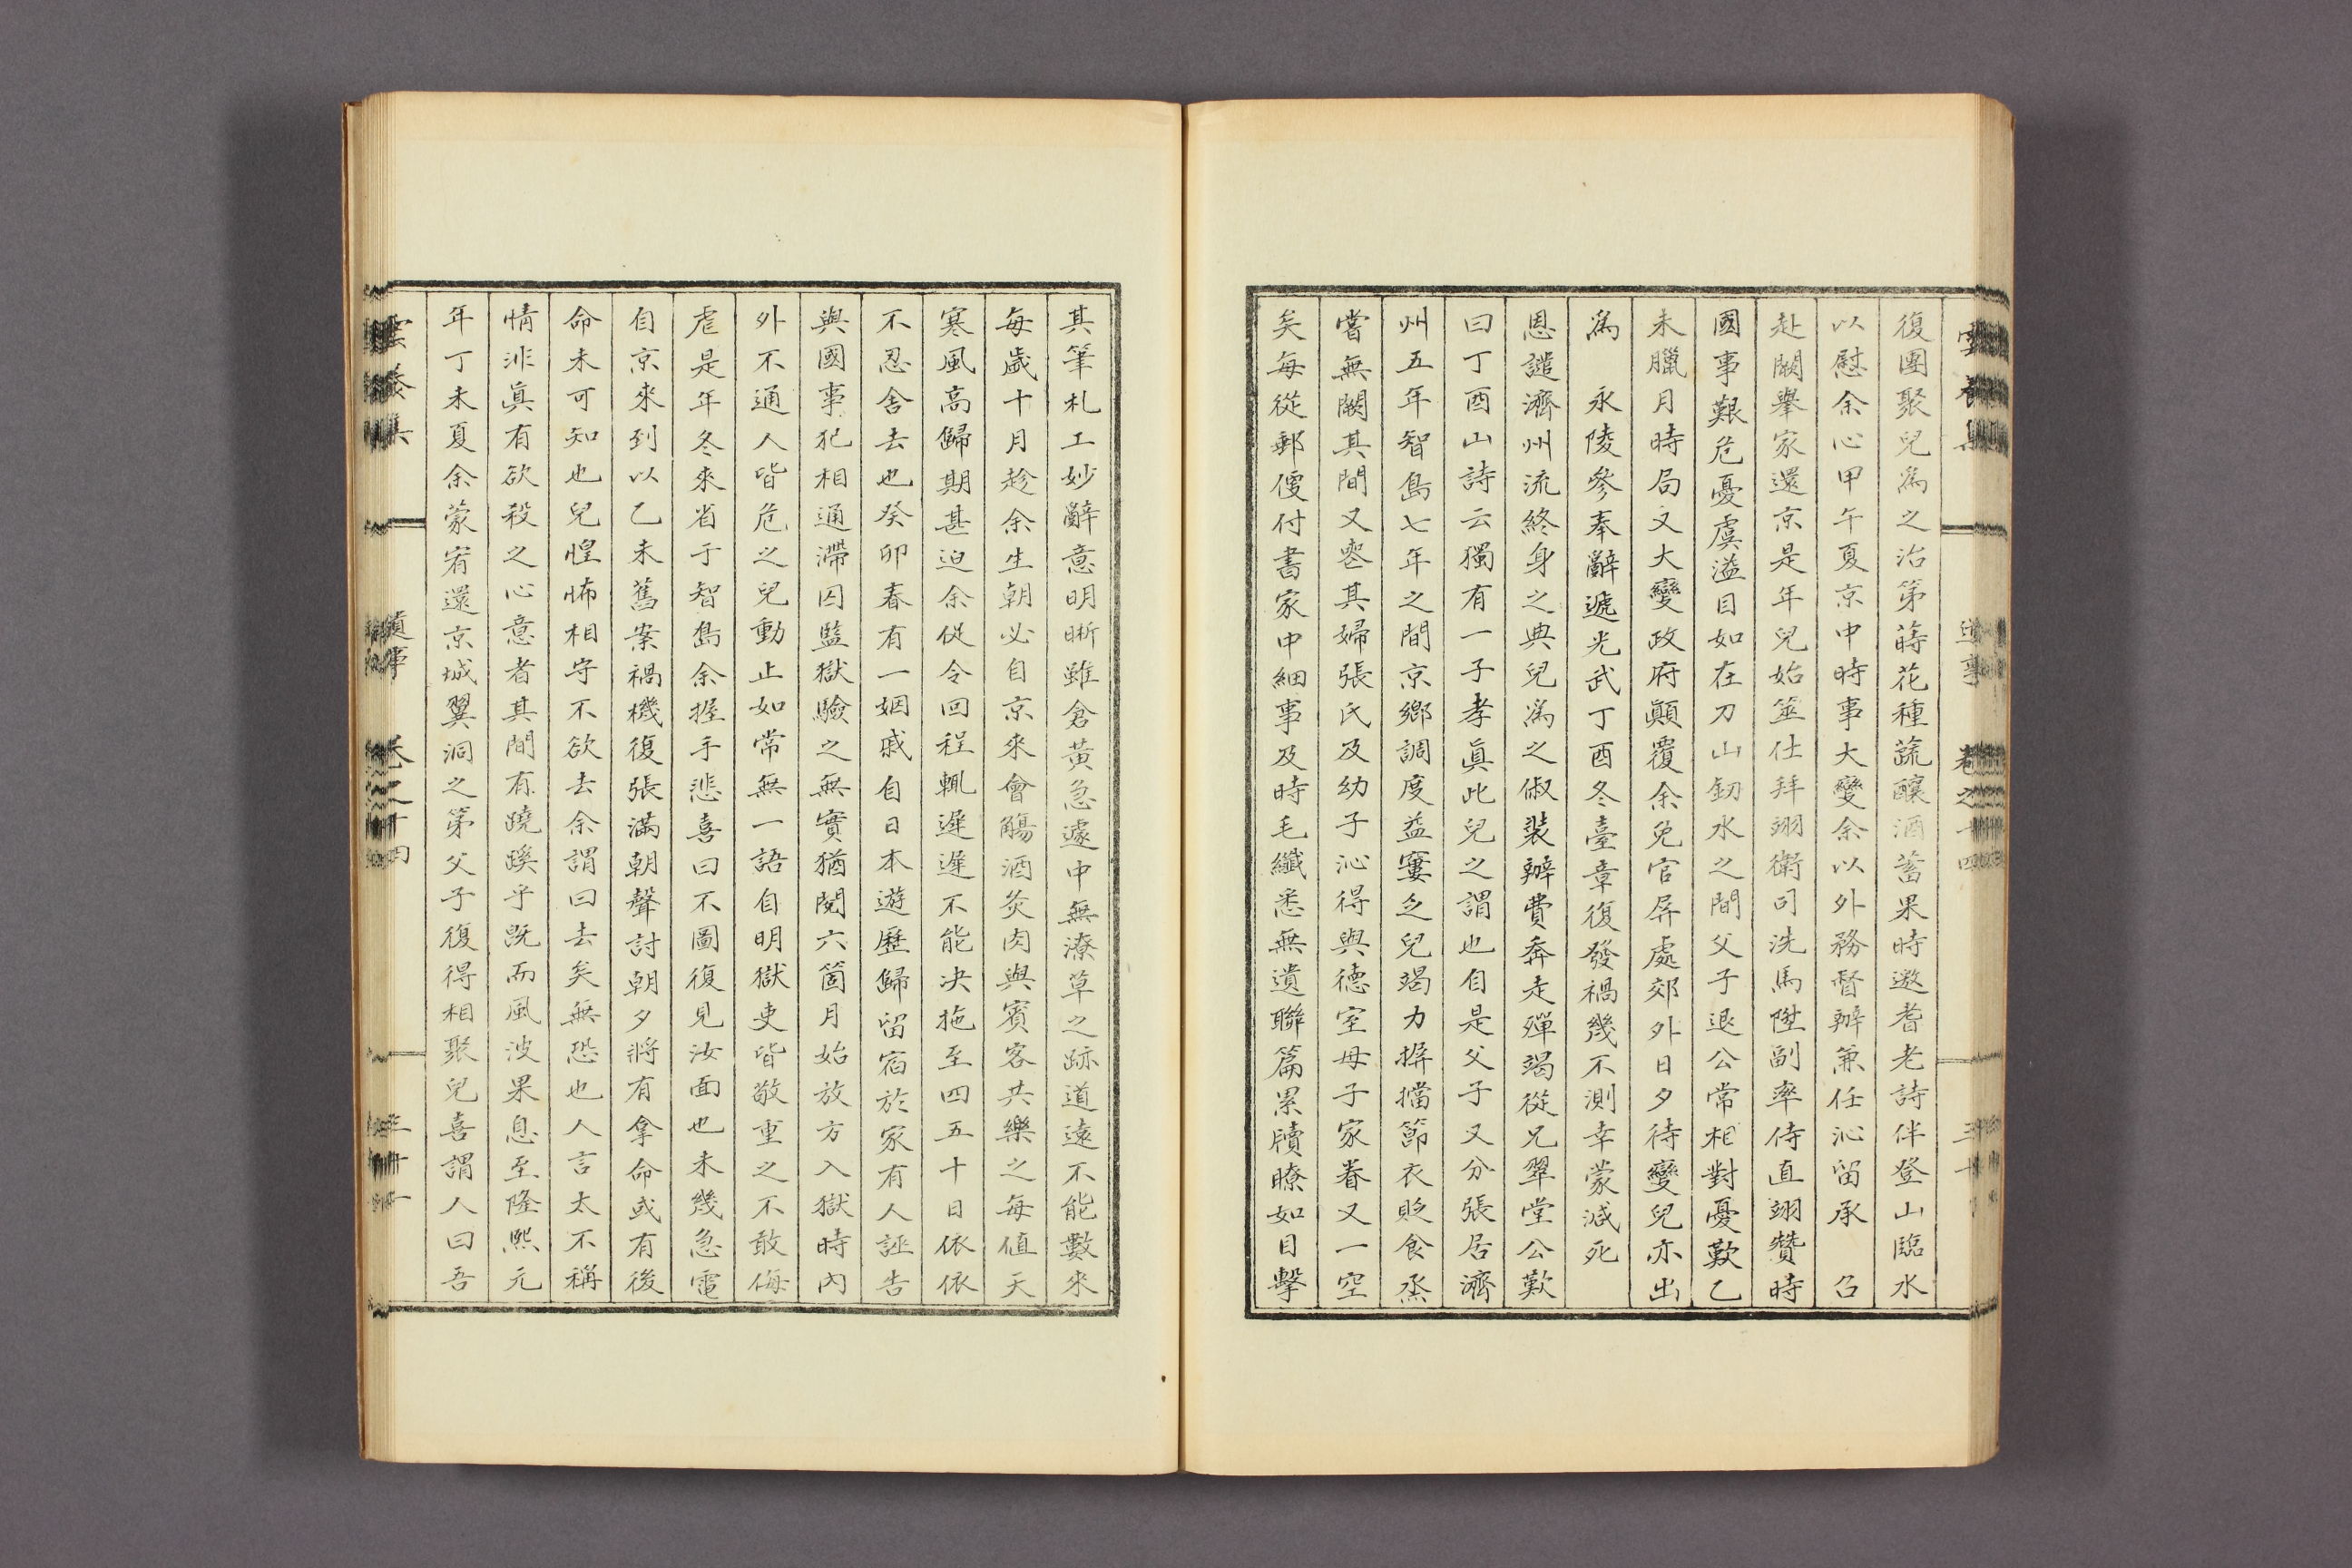 雲養集
遺事
卷之十四
三十
復團聚兒爲之治第蒔花種蔬釀酒蓄果時邀耆老詩伴登山臨水
以慰余心甲午夏京中時事大變余以外務督辦兼任沁留承　召
赴闕擧家還京是年兒始筮仕拜翊衛司洗馬陞副率侍直翊贊時
國事艱危憂虞溢目如在刀山釼水之間父子退公常相對憂歎乙
未臘月時局又大變政府顚覆余免官屏處郊外日夕待變兒亦出
爲　永陵參奉辭遞光武丁酉冬臺章復發禍幾不測幸蒙減死
恩譴濟州流終身之典兒爲之俶裝辦費奔走殫竭從兄翠堂公歎
曰丁酉山詩云獨有一子孝眞此兒之謂也自是父子又分張居濟
州五年智島七年之間京鄕調度益窶乏兒竭力摒擋節衣貶食烝
嘗無闕其間又喪其婦張氏及幼子沁得與德室母子家眷又一空
矣每從郵便付書家中細事及時毛纖悉無遺聯篇累牘瞭如目擊
其筆札工妙辭意明晰雖倉黃急遽中無潦草之跡道遠不能數來
每歲十月趁余生朝必自京來會觴酒炙肉與賓客共樂之每値天
寒風高歸期甚迫余促令回程輒遲遲不能决拖至四五十日依依
不忍舍去也癸卯春有一姻戚自日本遊歷歸留宿於家有人誣告
與國事犯相通滯囚監獄驗之無實猶閱六箇月始放方入獄時內
外不通人皆危之兒動止如常無一語自明獄吏皆敬重之不敢侮
虐是年冬來省于智島余握手悲喜曰不圖復見汝面也未幾急電
自京來到以乙未舊案禍機復張滿朝聲討朝夕將有拿命或有後
命未可知也兒惶怖相守不欲去余謂曰去矣無恐也人言太不稱
情非眞有欲殺之心意者其間有蹺蹊乎旣而風波果息至隆熙元
年丁未夏余蒙宥還京城翼洞之第父子復得相聚兒喜謂人曰吾
雲養集
遺事
卷之十四
三十一